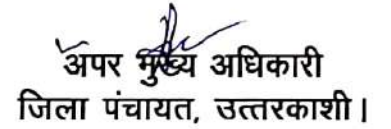 अपर मुख्य अधिकारी
जिला पंचायत, उत्तरकाशी।